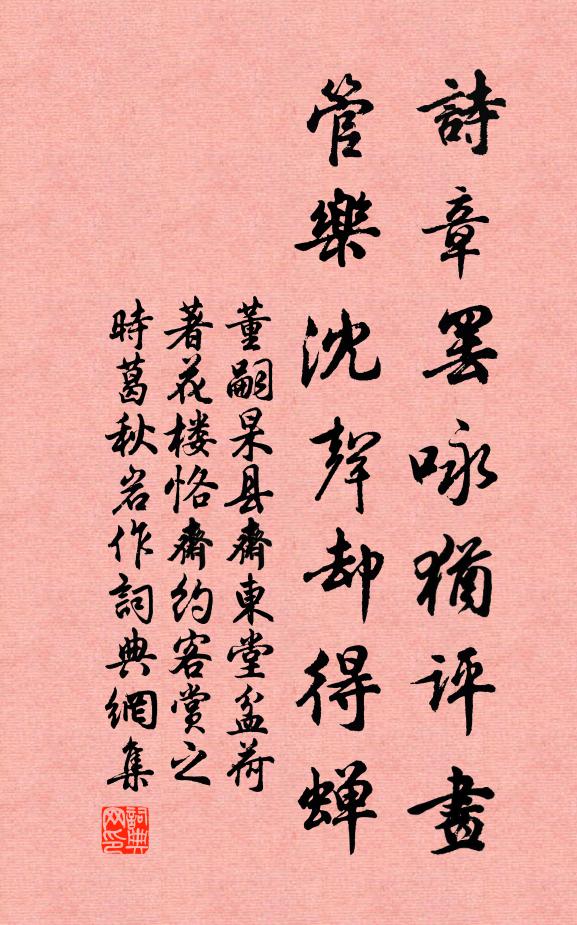 詩章罢咏猶评畫
管樂沈聲却得蝉
董嗣杲县齋東堂盆荷
著花楼恪齋約客赏之
時葛秋岩作詞典網集
詞典网印